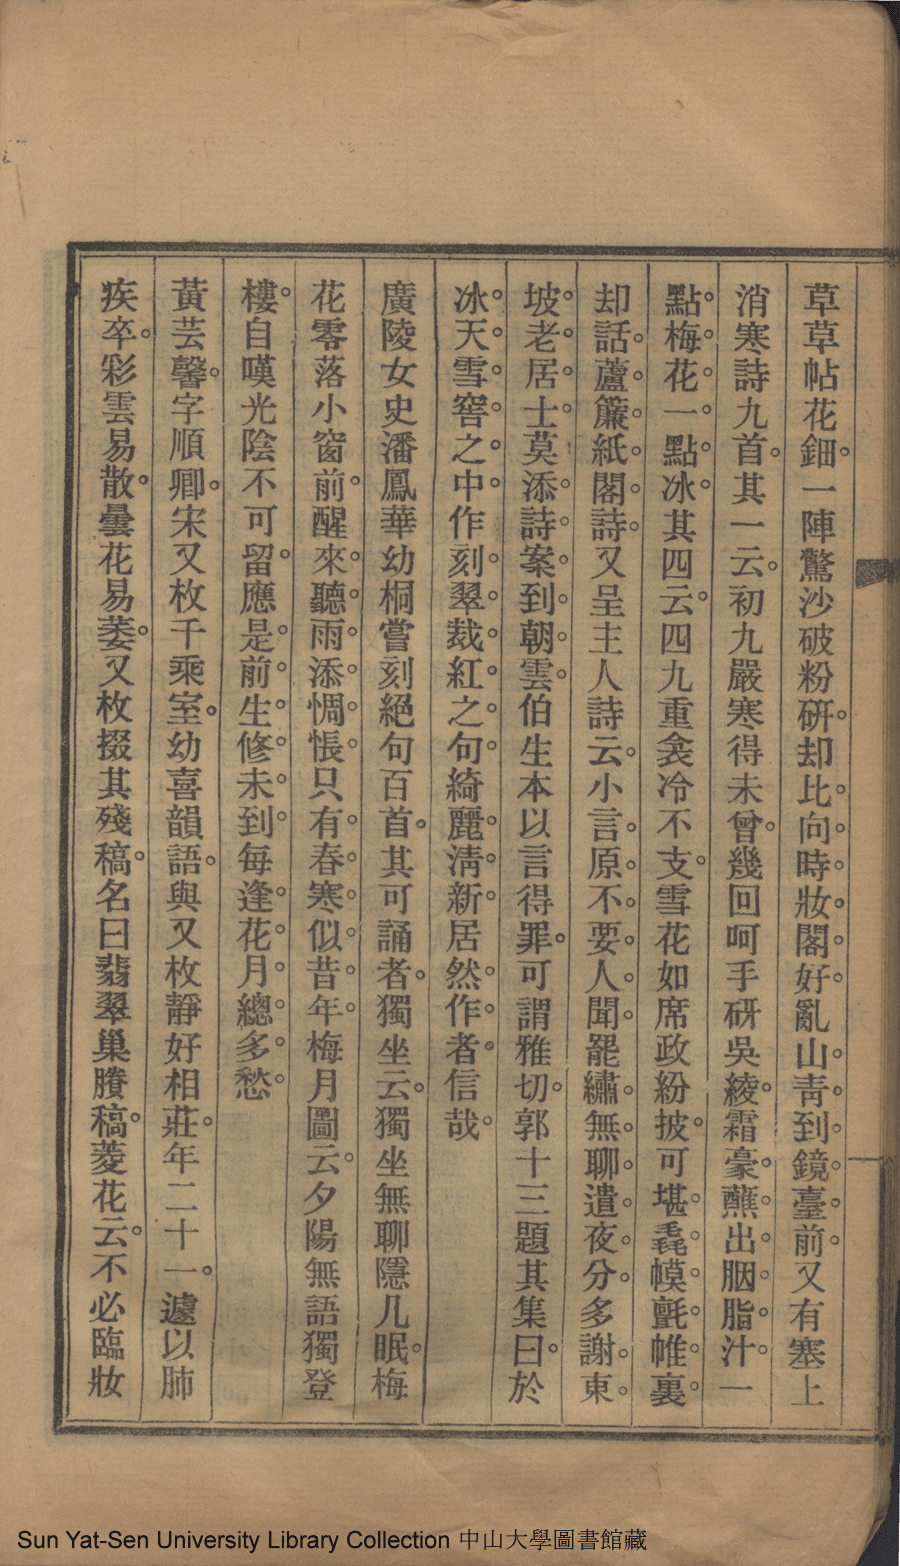 草草帖花鈿。一陣驚沙破粉硏。却比。向。時。妝。閣。好。亂山。靑。到。鏡。臺。前。又有塞上
消寒詩九首。其一云。初九嚴寒得未曾。幾回呵手硏吳綾。霜豪。蘸。出。胭。脂。汁。一
點。梅。花。一。點。冰。其四云。四九重衾冷不支。雪花如席政紛披。可堪。毳。幙。氈。帷。裏。
却話。蘆。簾。紙。閣。詩。又呈主人詩云。小言。原。不。要。人。聞。罷繡。無。聊。遣。夜。分。多謝。東。
坡。老。居。士。莫添。詩。案。到。朝。雲。伯生本以言得罪。可謂雅切。郭十三題其集曰。於
冰。天。雪。窖。之。中。作刻。翠。裁。紅。之。句。綺麗。淸。新。居然。作。者。信哉。
廣陵女史潘鳳華幼桐嘗刻絕句百首。其可誦者。獨坐云。獨坐無聊隱几眠。梅
花零落小窗前。醒來。聽。雨。添。惆。悵。只有。春。寒。似。昔。年。梅月圖云。夕陽無語獨登
樓。自嘆光陰不可留。應是。前。生。修。未。到。每逢。花。月。總。多。愁。
黃芸馨。字順卿。宋又枚千乘室。幼喜韻語。與又枚靜好相莊。年二十一。遽以肺
疾卒。彩雲易散。曇花易萎。又枚掇其殘稿。名曰翡翠巢賸稿。菱花云。不必臨妝
Sun Yat-Sen University Library Collection 中山大學圖書館藏